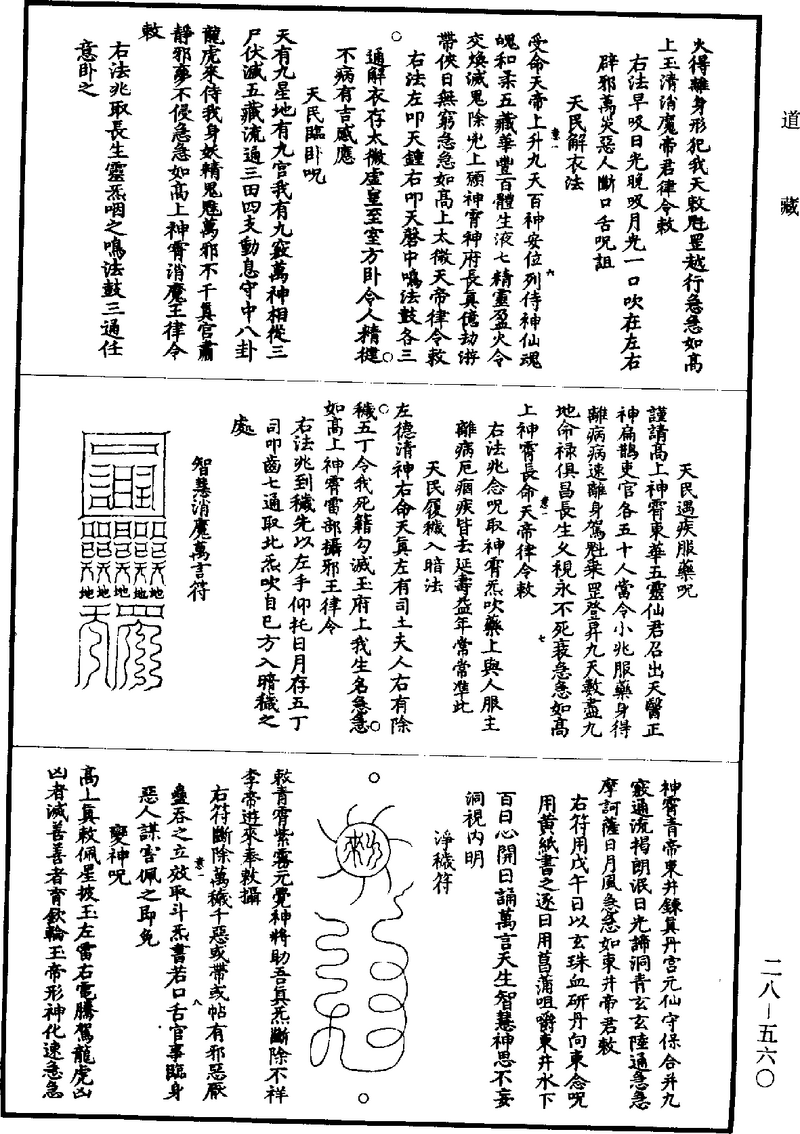 道藏
火得離身形犯我天敕魁罡越行急急如高
上玉清消魔帝君律令敕
右法早吸日光晚吸月光一口吹在左右
辟邪萬災惡人斷口舌呪詛
天民解衣法
受命天帝上升九天百神安位列侍神仙魂
魄和柔五藏華豐百體生液七精靈盈火令
交煥滅鬼除兇上願神霄神府長真億劫游
帶俠日無窮急急如高上太微天帝律令敕
右法左叩天鐘右叩天磬中鳴法鼓各三
通解衣存太微虛皇至室方卧令人精健
不病有吉感應
天民臨卧呪
天有九星地有九宮我有九竅萬神相從三
尸伏滅五藏流通三田四支動息守中八卦
龍虎來侍我身妖精鬼魅萬邪不干真官肅
靜邪夢不侵急急如高上神霄消魔王律令
敕
右法兆取長生靈炁咽之鳴法鼓三通任
意卧之
天民遇疾服藥呪
謹請高上神霄東華五靈仙君召出天醫正
神扁鵲吏官各五十人當令小兆服藥身得
離病病速離身駕魁乘罡登昇九天數盡九
地命祿俱昌長生久視永不死衰急急如高
上神霄長命天帝律令敕
右法兆念呪取神霄炁吹藥上與人服主
離病厄痼疾皆去延壽益年常常準此
天民履穢入暗法
左德清神右命天真左有司土夫人右有除
穢五丁令我死籍勾滅玉府上我生名急急
如高上神霄雷部攝邪王律令
右法兆到穢先以左手仰托日月存五丁
司叩齒七通取北炁吹自巳方入暗穢之
處
智慧消魔萬言符
神霄青帝東井鍊真丹宮元仙守保合并九
竅通流揭朗泯日光諦洞青玄玄陸通急急
摩訶薩日月風急急如東井帝君敕
右符用戊午日以玄珠血研丹向東念呪
用黃紙書之逐日用菖蒲咀嚼東井水下
百日心開日誦萬言天生智慧神思不妄
洞視內明
淨穢符
敕青霄紫霧元覺神將助吾真炁斷除不祥
李帝遊來奉敕攝
右符斷除萬穢千惡或帶或帖有邪惡厭
蠱吞之立效取斗炁書若口舌官事臨身
惡人謀害佩之即免
變神呪
高上真敕佩星披玉左雷右電騰駕龍虎凶
凶者滅善善者育欽輪王帝形神化速急急
二八—五六〇